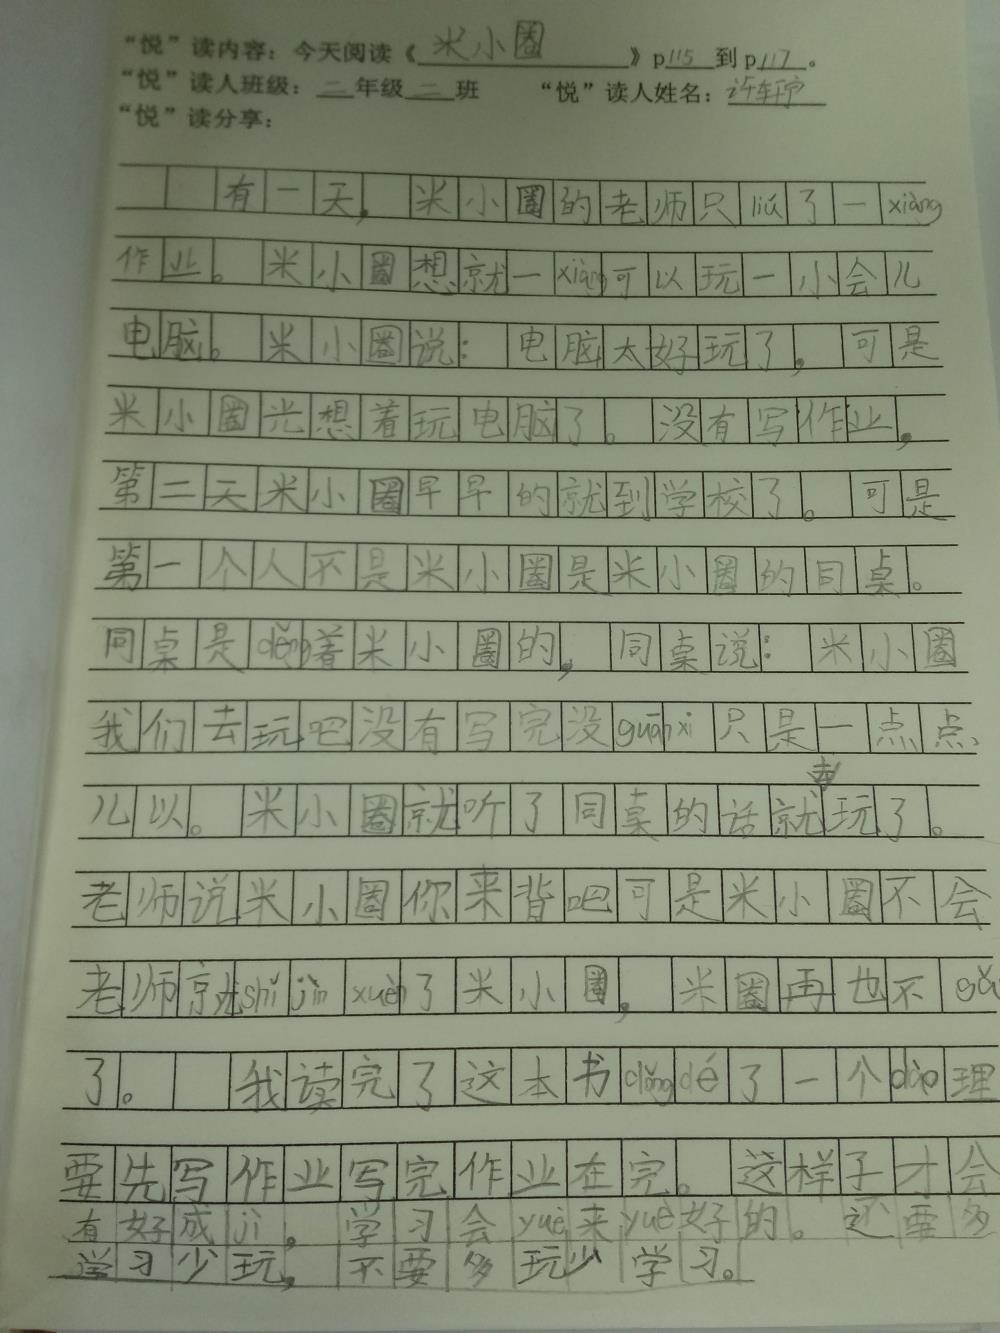 “悦”读内容：今天阅读《米小圈》p115到p117。
“悦”读人班级：二年级二班 “悦”读人姓名：许轩宁
“悦”读分享：
有一天，米小圈的老师只liú了一xiàng
作业。米小圈想就一xiàng可以玩一小会儿
电脑。米小圈说：电脑太好玩了，可是
米小圈光想着玩电脑了。没有写作业，
第二天米小圈早早的就到学校了。可是
第一个人不是米小圈是米小圈的同桌。
同桌是děng着米小圈的，同桌说：米小圈
我们去玩吧没有写完没guānxi只是一点点
儿以。米小圈就听了同桌的话就去玩了。
老师说米小圈你来背吧可是米小圈不会
老师就shǐ jìn xuèn了米小圈，米圈再也不gǎ
了。 我读完了这本书dǒng dé了一个dào理
要先写作业写完作业在完。这样子才会
有好成jì，学习会yuè来yuè好的。还要多
学习少玩，不要多玩少学习。